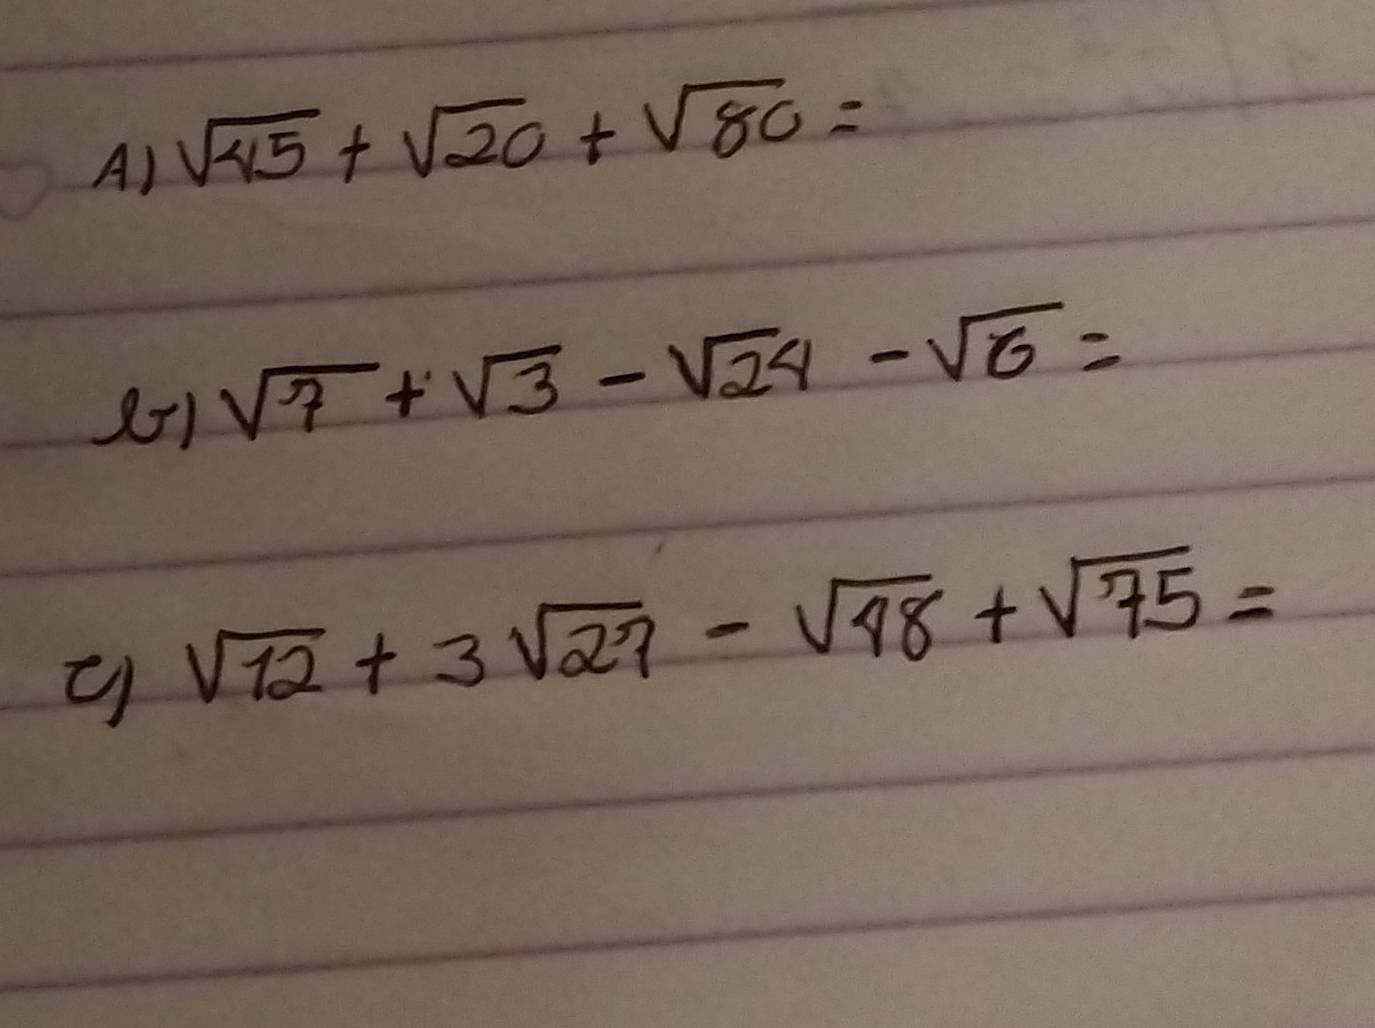 A) √45 + √20 + √80 =
b) √7 + √3 - √24 - √6 =
c) √12 + 3√27 - √48 + √75 =